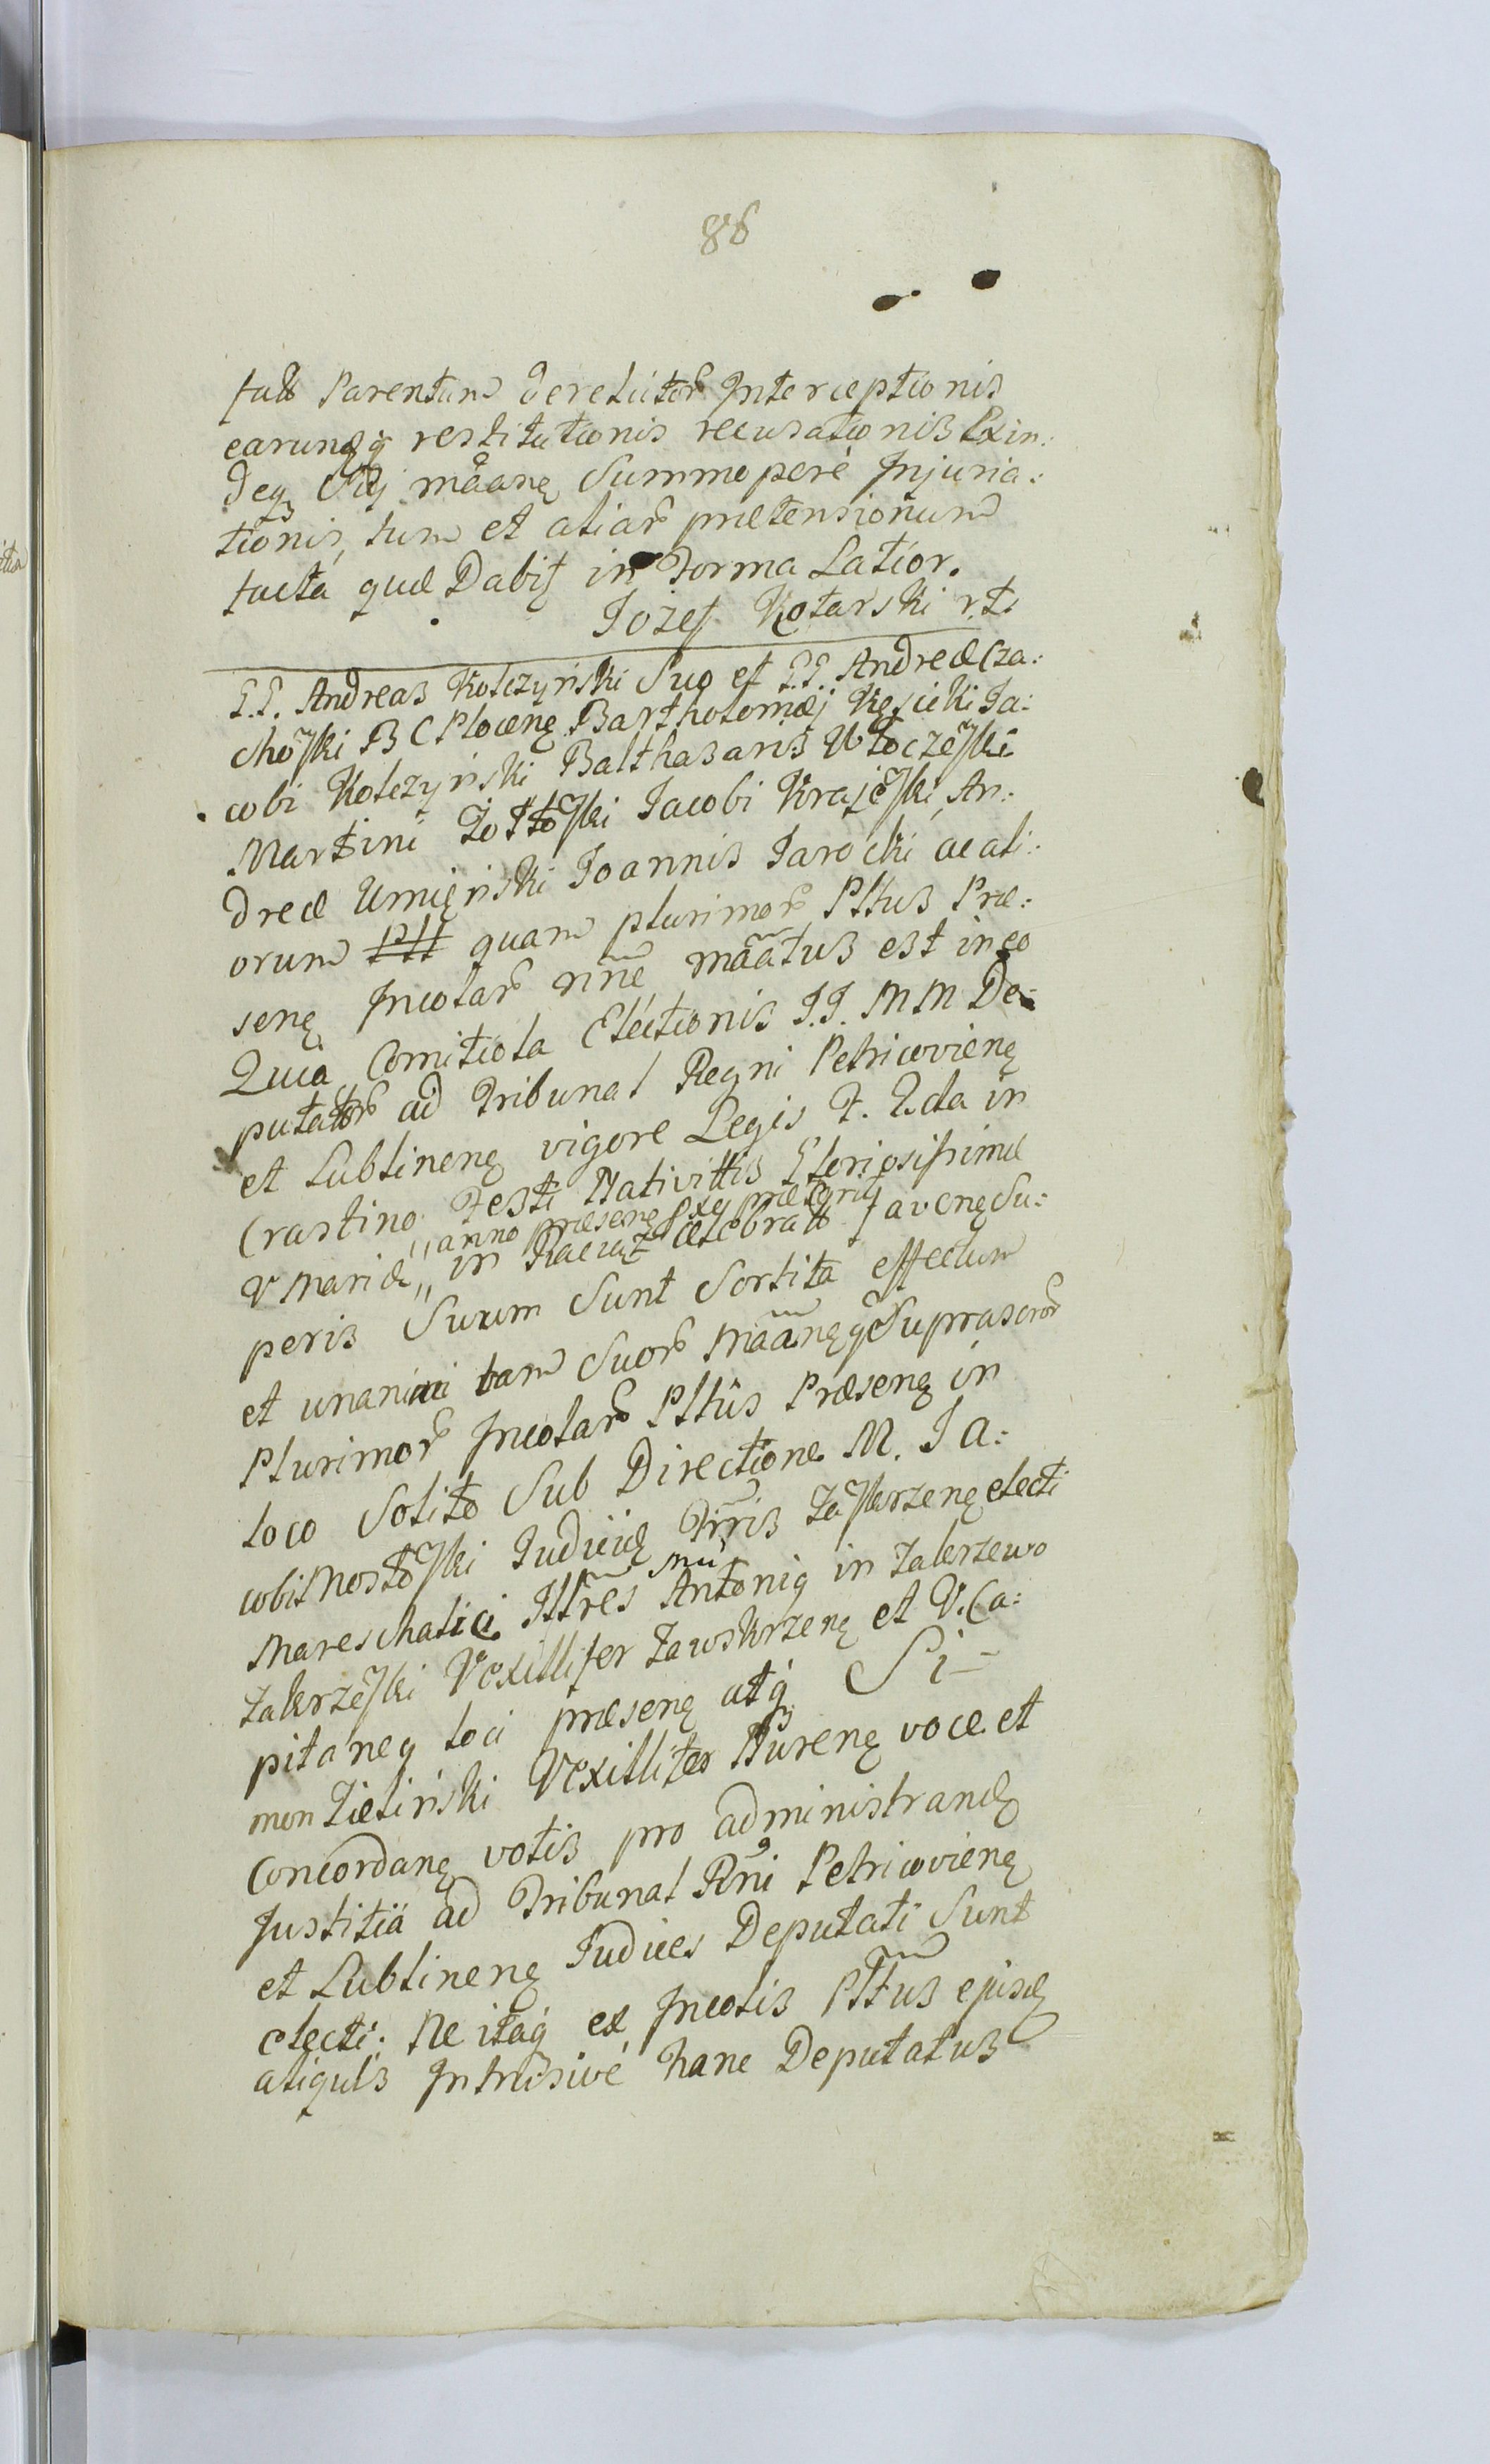 86
fatt Parentum derelictor Interceptionis
earundq restitutionis recusationis Exin:
deq sui maane Summopere Injuria:
tionis, tum et aliar prætensionum
facta quæ Dabit in Forma Latior.
Jozef Kotarski r.t.
G.G. Andreas Kolczyński Suo et G.G. Andreæ Cza:
choski B C Plocen Bartholomæj Kęsicki Ja:
cobi Kolczyński Balthasaris Włoczeski
Martini Żołtoski Jacobi Krajeski, An:
dreæ Umięński Joannis Jarocki ac ali:
orum Ptt quam plurimor Pttus Præ:
sen Incolar nne maatus est in eo
Quia Comitiola Electionis J.J. M M De:
putator ad Tribunal Regni Petricovien
et Lublinen vigore Legis F. Ecla in
Crastino Festi Nativittis Gloriosissimæ
anno præsen
V Mariæ,, in Raciąż celebratt faven Su:
peris Suum Sunt Sortita effectum
et unanimi tam Suor maan q Suprascror
Plurimor Incolar Pttus Præsen in
loco Solito Sub Directione M. Ja:
cobi Mostoski Judicis Trris Zaskrzen electi
Mareschalici Illres Antoni in Zakrzewo
mu
Zakrzeski Vexillifer Zawskrzen et V. Ca:
pitane loci præsen atq Si-
mon Zieliński Vexillifer Ruren voce et
Concordan votis pro administrand
Justitiä ad Tribunal Rni Petricovien
et Lublinen Judices Deputati Sunt
electi: Ne itaq ex Incolis Pttus ejusd
aliquis Intrusive hanc Deputatus